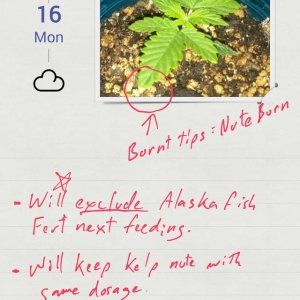 16
Mon
Burnt tips: Nute Burn
- Will exclude Alaska fish
Fert next feeding.
- Will keep kelp nute with
same dosage.